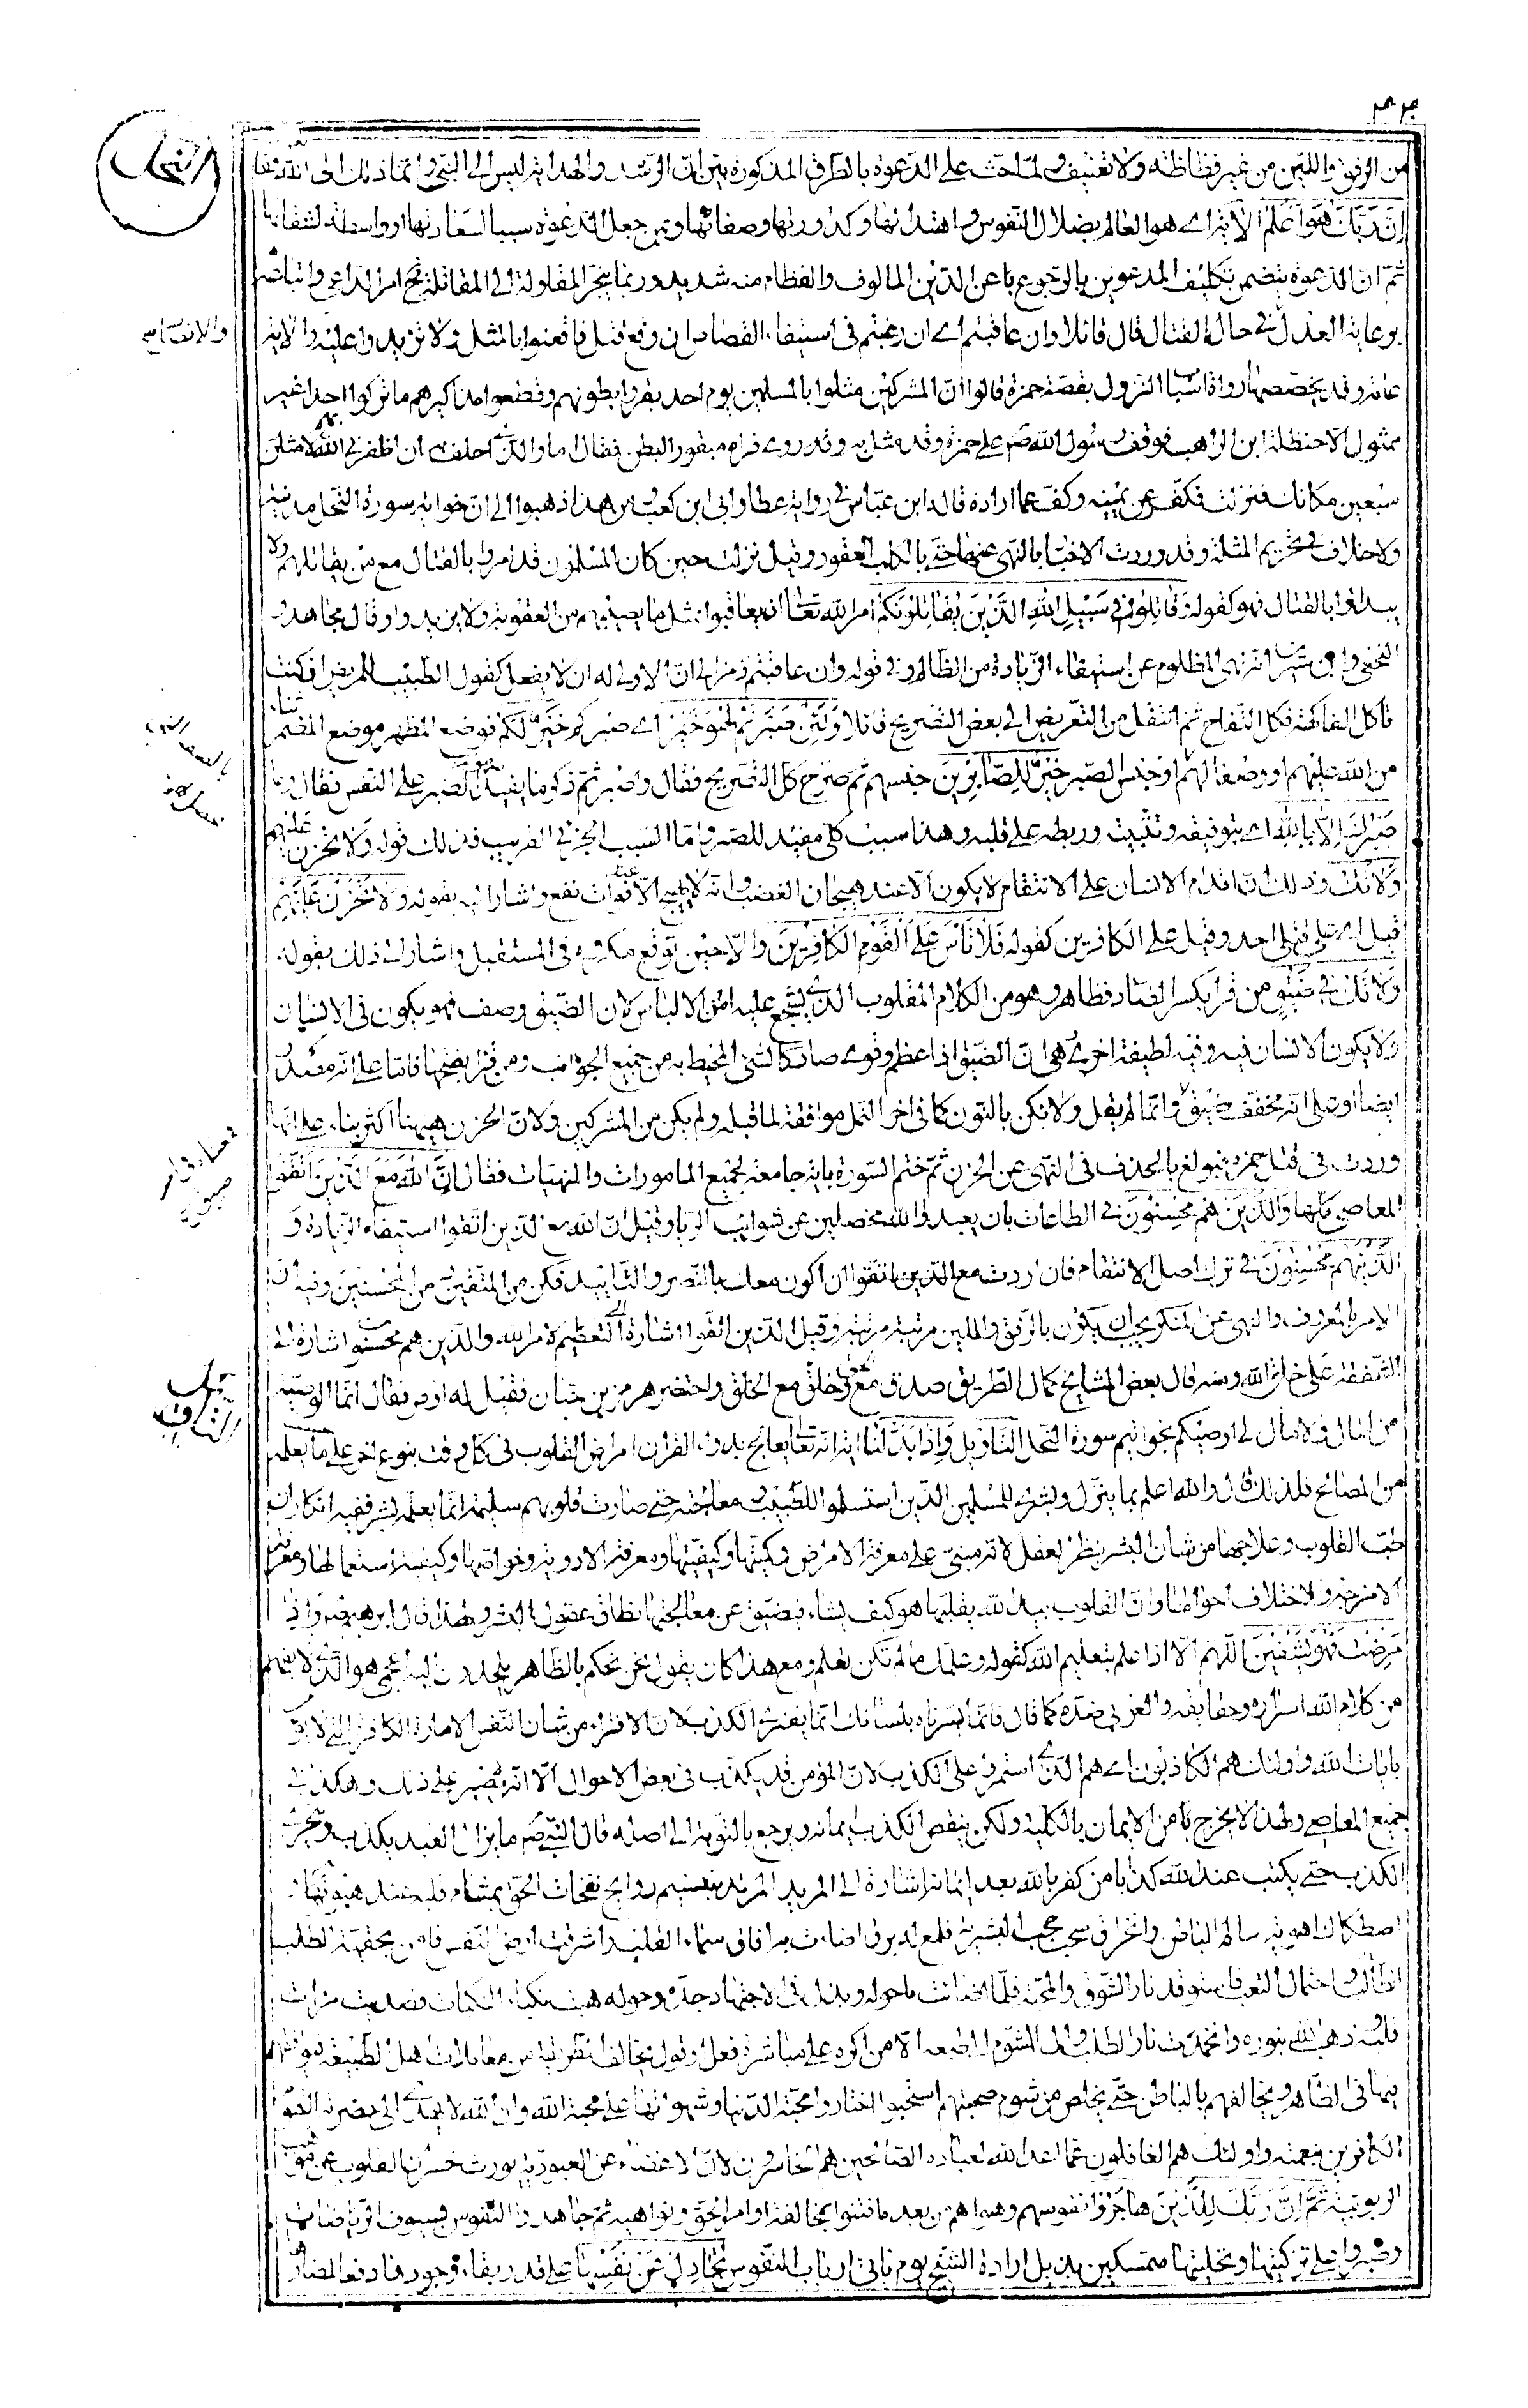 من الرفق واللين من غير فظاظة ولا تعنيف ولما حث على الدعوة بالطرق المذكورة بين ان الرشد والهداية ليس الى النبي وانما ذلك الى الله تعالى فقال
ان ربك هو اعلم الآية اي هو العالم بضلال النفوس واهتدائها وكدورتها وصفائها وبمن جعل الدعوة سببا لسعادتها او واسطة لشقائها
ثم ان الدعوة يتضمن تكليف المدعوين بالرجوع عن الدين المالوف والفطام منه شديد وربما ينجر المقاولة الى المقاتلة امر الداعي واتباعه
برعاية العدل في حال القتال قال قائلا وان عاقبتم اي ان رغبتم في استيفاء القصاص ان وقع قتل فاقنعوا بالمثل ولا تزيدوا عليه والآية
عامة وقد يخصصها رواة اسباب النزول بقصة حمزة قالوا ان المشركين مثلوا بالمسلمين يوم احد بقروا بطونهم وقطعوا مذاكيرهم ما تركوا احدا غير
ممثول الا حنظلة ابن الراهب فوقف رسول الله ص على حمزة وقد مثل به وقد روي فراه مبقور البطن فقال اما والذي احلف به ان اظفرني الله بهم لامثلن
سبعين مكانك فنزلت فكفر عن يمينه وكف عما اراده قاله ابن عباس في رواية عطا وابي ابن كعب ومن هذا ذهبوا الى ان خواتيم سورة النحل مدنية
ولا خلاف في تحريم المثلة وقد وردت الاخبار بالنهي عنها حتى بالكلب العقور وقيل نزلت حين كان المسلمون قد امروا بالقتال مع من يقاتلهم ولا
يبداوا بالقتال فهو كقوله وقاتلوا في سبيل الله الذين يقاتلونكم امر الله تعالى ان يعاقبوا بمثل ما يصيبهم من العقوبة ولا يزيدوا وقال مجاهد و
النخعي وابن سيرين انه نهى المظلوم عن استيفاء الزيادة من الظالم وفي قوله وان عاقبتم رمز الى ان الاولى له ان لا يفعل كقول الطبيب للمريض ان كنت
تاكل الفاكهة فكل التفاح ثم انتقل من التعريض الى بعض التصريح قائلا ولئن صبرتم لهو خير اي صبركم خير لكم فوضع المظهر موضع المضمر ثناء
من الله عليهم او وصفا لهم او جنس الصبر خير للصابرين جنسهم ثم صرح كل التصريح فقال واصبر ثم ذكر ما يفيد سهولة الصبر على النفس فقال وما
صبرك الا بالله اي بتوفيقه وتثبيته وربطه على قلبه وهذا سبب كلي مفيد للصبر واما السبب الجزئي القريب فذلك قوله ولا تحزن عليهم
ولا تك وذلك ان اقدام الانسان على الانتقام لا يكون الا عند هيجان الغضب وانه لا يهيج الا عند فوات نفع واشار اليه بقوله ولا تحزن عليهم
قيل اي على قتلى احد وقيل على الكافرين كقوله فلا تاس على القوم الكافرين والا حين توقع مكروه في المستقبل واشار الى ذلك بقوله
ولا تك في ضيق من قرا بكسر الضاد فظاهر وهو من الكلام المقلوب الذي يشجع عليه امن الالباس لان الضيق وصف فهو يكون في الانسان
ولا يكون الانسان فيه وفيه لطيفة اخرى هي ان الضيق اذا عظم وقوي صار كالشيء المحيط به من جميع الجوانب ومن قرا بفتحها فاما على انه مصدر
ايضا او على انه مخفف ضيق وانما لم يقل ولا تكن بالنون كما في اخر النمل موافقة لما قبله ولم يكن من المشركين ولان الحزن ههنا اكثر بناء على انها
وردت في قتل حمزة فبولغ بالحذف في النهي عن الحزن ثم ختم السورة باية جامعة لجميع المامورات والمنهيات فقال ان الله مع الذين اتقوا
المعاصي كلها والذين هم محسنون في الطاعات بان يعبدوا الله مخلصين عن شوائب الريا وقيل ان الله مع الذين اتقوا استيفاء الزيادة و
الذين هم محسنون في ترك اصل الانتقام فان اردت مع الذين اتقوا ان اكون معك بالنصر والتاييد فكن من المتقين من المحسنين وفيه ان
الامر بالمعروف والنهي عن المنكر يجب ان يكون بالرفق واللين مرتبة مرتبة وقيل الذين اتقوا اشارة الى التعظيم لامر الله والذين هم محسنون اشارة الى
الشفقة على خلق الله ومنه قال بعض المشايخ كمال الطريق صدق مع الحق وخلق مع الخلق واحتضر هرم بن حيان فقيل له اوص فقال انما الوصية
من المال ولا مال لي اوصيكم بخواتيم سورة النحل التاويل واذا بدلنا آية انه تعالى يعالج بدواء القران امراض القلوب في كل وقت بنوع اخر على ما يعلم
من المصالح فلذلك قال والله اعلم بما ينزل وبشرى للمسلمين الذين استسلموا للطبيب ومعالجته حتى صارت قلوبهم سليمة انما يعلمه بشر ففيه انكار ان
طب القلوب وعلاجها من شان البشر بنظر العقل لانه مبني على معرفة الامراض وكميتها وكيفيتها ومعرفة الادوية وخواصها وكيفية استعمالها ومعرفة
الامزجة واختلاف احوالها وان القلوب بيد الله يقلبها هو كيف يشاء فيضيق عن معالجتها نطاق عقول البشر ولهذا قال ابرهيم واذا
مرضت فهو يشفين اللهم الا اذا علم بتعليم الله كقوله وعلمك ما لم تكن تعلم ومع هذا كان يقول نحن نحكم بالظاهر يلحدون اليه اعجمي هو الذي لا يفهم
من كلام الله اسراره وحقايقه والعربي ضده كما قال فانما يسرناه بلسانك انما يفتري الكذب لان الافتراء من شان النفس الامارة الكافرة التي لا يؤمن
بايات الله واولئك هم الكاذبون اي هم الذين استمروا على الكذب لان المؤمن قد يكذب في بعض الاحوال الا انه لا يصبر على ذلك وهكذا في
جميع المعاصي ولهذا لا يخرج من الايمان بالكلية ولكن ينقص الكذب ايمانه ويرجع بالتوبة الى اصله قال النبي ص ما يزال العبد يكذب ويتحرى
الكذب حتى يكتب عند الله كذابا من كفر بالله بعد ايمانه اشارة الى المريد المرتد بنسيم روايح نفحات الحق بمشام قلبه عند هبوبها و
اصطكاك اهوية سالم الباطن وانخراق سحب حجب البشرية فلمع له برق اضاءت به افاق سماء القلب واشرقت ارض النفس فامن بحقية الطلب
الطالب واحتمال التعب فاستوقد نار الشوق والمحبة فلما اضاءت ما حوله وبذل في الاجتهاد جده وحوله هبت نكباء النكبات فصدئت مرآة
قلبه ذهب الله بنوره وانخمدت نار الطلب الشوم الى طبعه الا من اكره على مباشرة فعل او قول يخالف الطريقة من معاملات اهل الطبيعة فيوافقهم
فيها في الظاهر ويخالفهم بالباطن حتى يخلص من شوم صحبتهم استحبوا اختاروا محبة الدنيا وشهواتها على محبة الله وان الله لا يهدي الى حضرته القوم
الكافرين بنعمته واولئك هم الغافلون عما اعد الله لعباده الصالحين هم الخاسرون لان الاعضاء عن العبودية يورث خسران القلوب عن مواهب
الربوبية ثم ان ربك للذين هاجروا نفوسهم وهواهم من بعد ما فتنوا بمخالفة اوامر الحق ونواهيه ثم جاهدوا النفوس بسيوف الرياضات
وصبروا على تزكيتها وتحليتها متمسكين بذيل ارادة الشيخ يوم تاتي ارباب النفوس تجادل عن نفسها على قدر بقاء وجودها دفعا لمضار